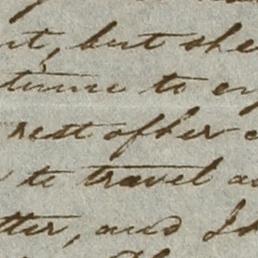 nt, but she
tinue to en
rest of her
to travel a
tter, and I